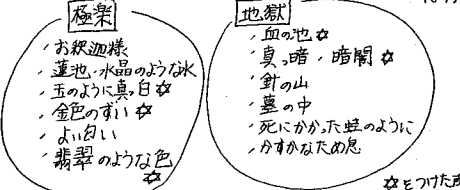 極楽
・お釈迦様
・蓮池・水晶のような水
・玉のように真っ白✡
・金色のずい✡
・よい匂い
・翡翠のような色
✡
地獄
・血の池✡
・真っ暗・暗闇✡
・針の山
・墓の中
・死にかかった蛙のように
・かすかなため息
✡をつけた